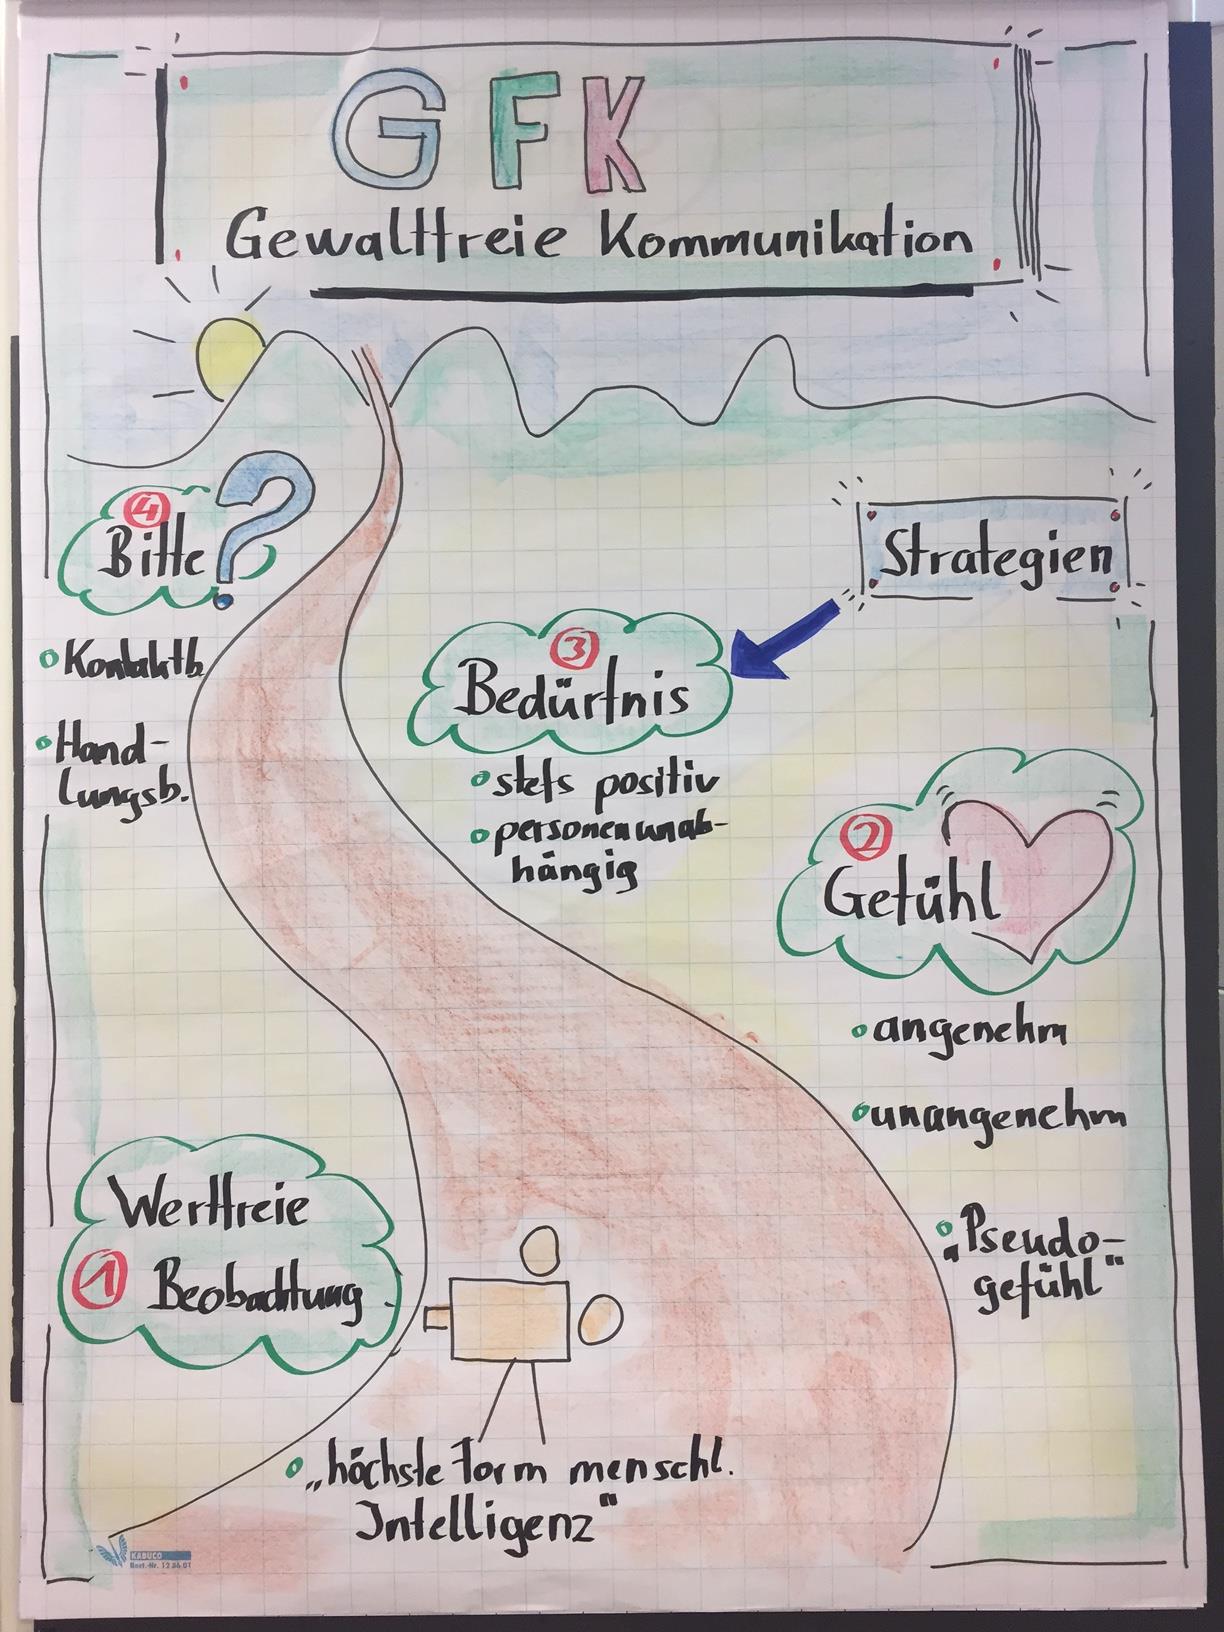 GFK
Gewaltfreie Kommunikation
4
Bitte ?
Kontaktb.
Hand-
lungsb.
Strategien
3
Bedürfnis
stets positiv
personenunab-
hängig
2
Gefühl
angenehm
unangenehm
„Pseudo-
gefühl"
Wertfreie
1 Beobachtung
„höchste Form menschl.
Intelligenz"
KABUCO
Best.-Nr. 12 86 01